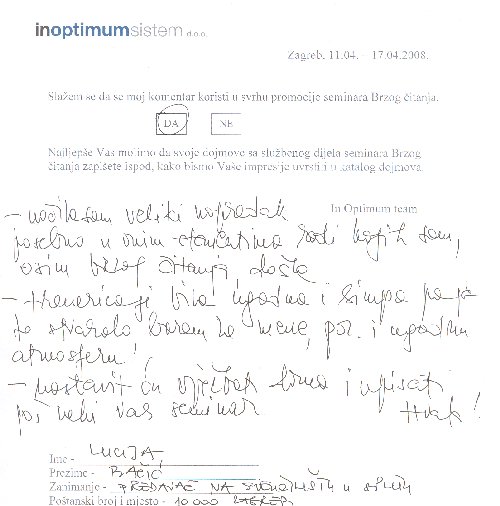 inoptimumsistem d.o.o.
Zagreb, 11.04. - 17.04.2008.
Slažem se da se moj komentar koristi u svrhu promocije seminara Brzog čitanja.
DA NE
Najljepše Vas molimo da svoje dojmove sa službenog dijela seminara Brzog
čitanja zapišete ispod, kako bismo Vaše impresije uvrstili u katalog dojmova.
In Optimum team
- uočila sam veliki napredak
posebno u onim elementima radi kojih sam,
osim brzog čitanja, došla
- trenerica je bila ugodna i simpa pa je
to stvaralo barem za mene, poz. i ugodnu
atmosferu!
- nastavit ću vježbati doma i upisati
još neki vaš seminar
Hvala!
Ime - LUCIJA
Prezime - BAČIĆ
Zanimanje - PREDAVAČ NA SVEUČILIŠTU u SPLITU
Poštanski broj i mjesto - 10 000 ZAGREB